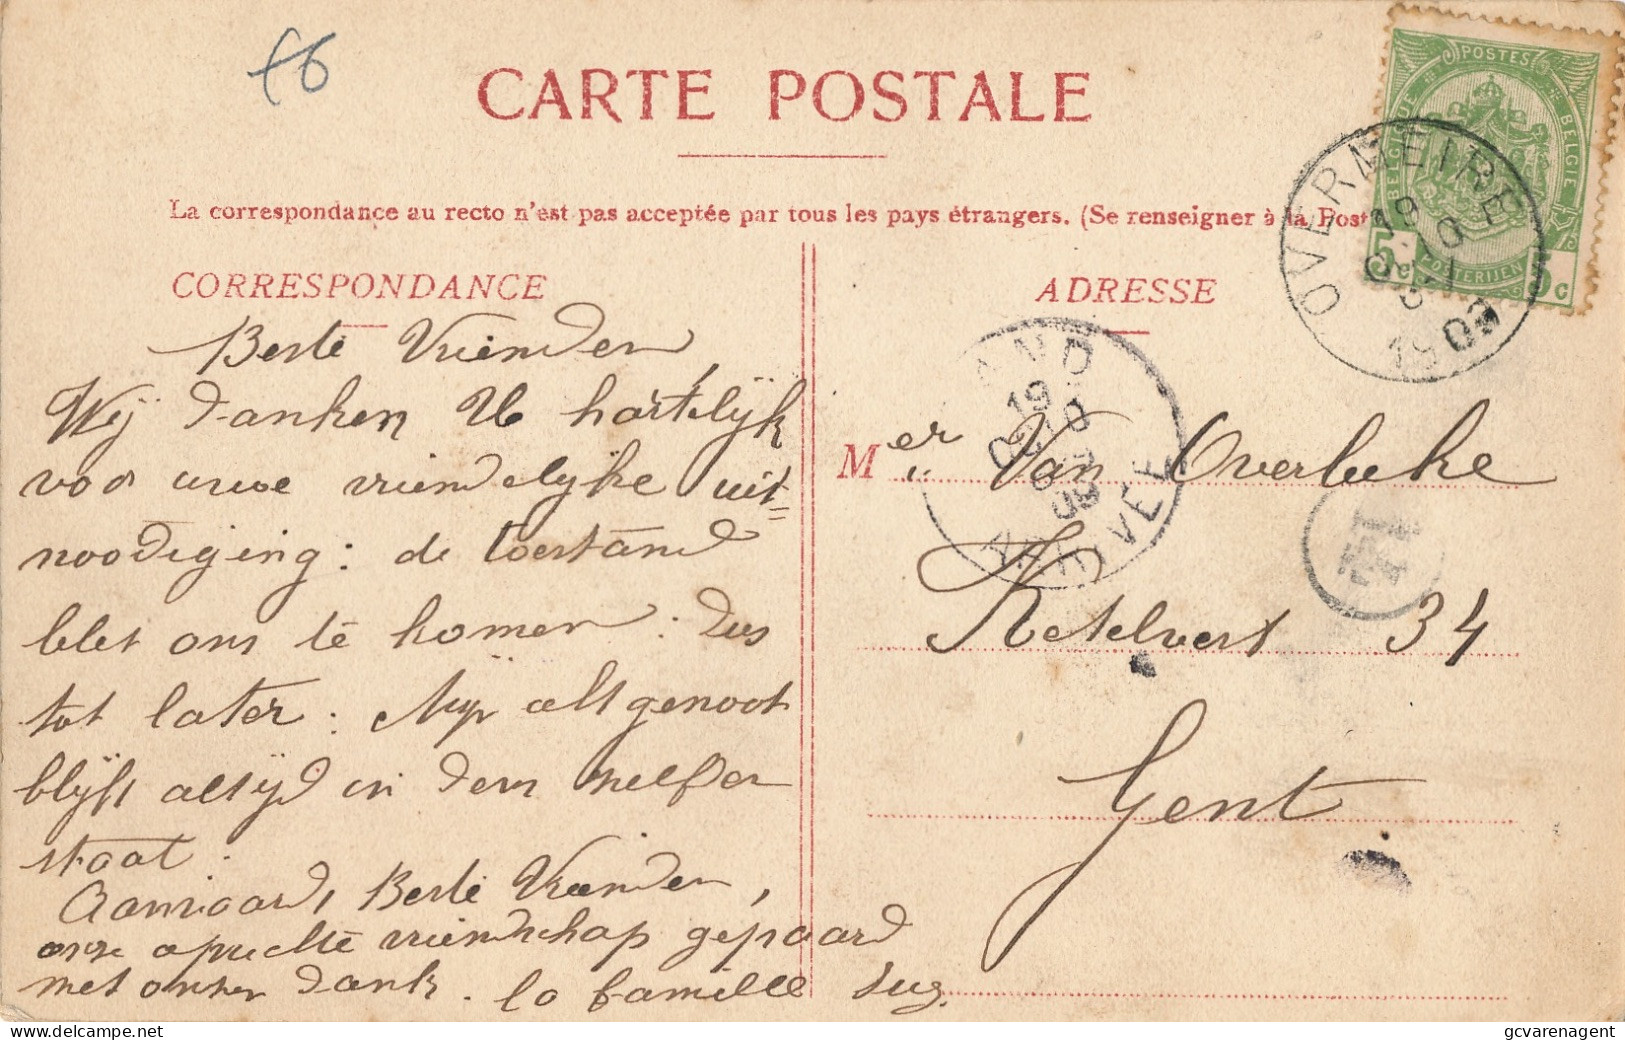 £6
CARTE POSTALE
La correspondance au recto n'est pas acceptée par tous les pays étrangers. (Se renseigner à la Post
POSTES
BELGIQUE
BELGIE
5c
POSTERIJEN
5c
OVERMEIRE
19
1909
CORRESPONDANCE
ADRESSE
Beste Vrienden,
Wij danken U hartelijk
voor uwe vriendelijke uit=
noodiging: de toestand
belet ons te komen: dus
tot later: Mijn altgenoot
blijft altijd in den zelfden
staat.
Aanvaard, Beste Vrienden,
onze oprechte vriendschap gepaard
met onzen dank. la famille
GAND
19
09
ARRIVÉE
Mer Van Overbeke
Ketelvest 34
Gent
gcvarenagent